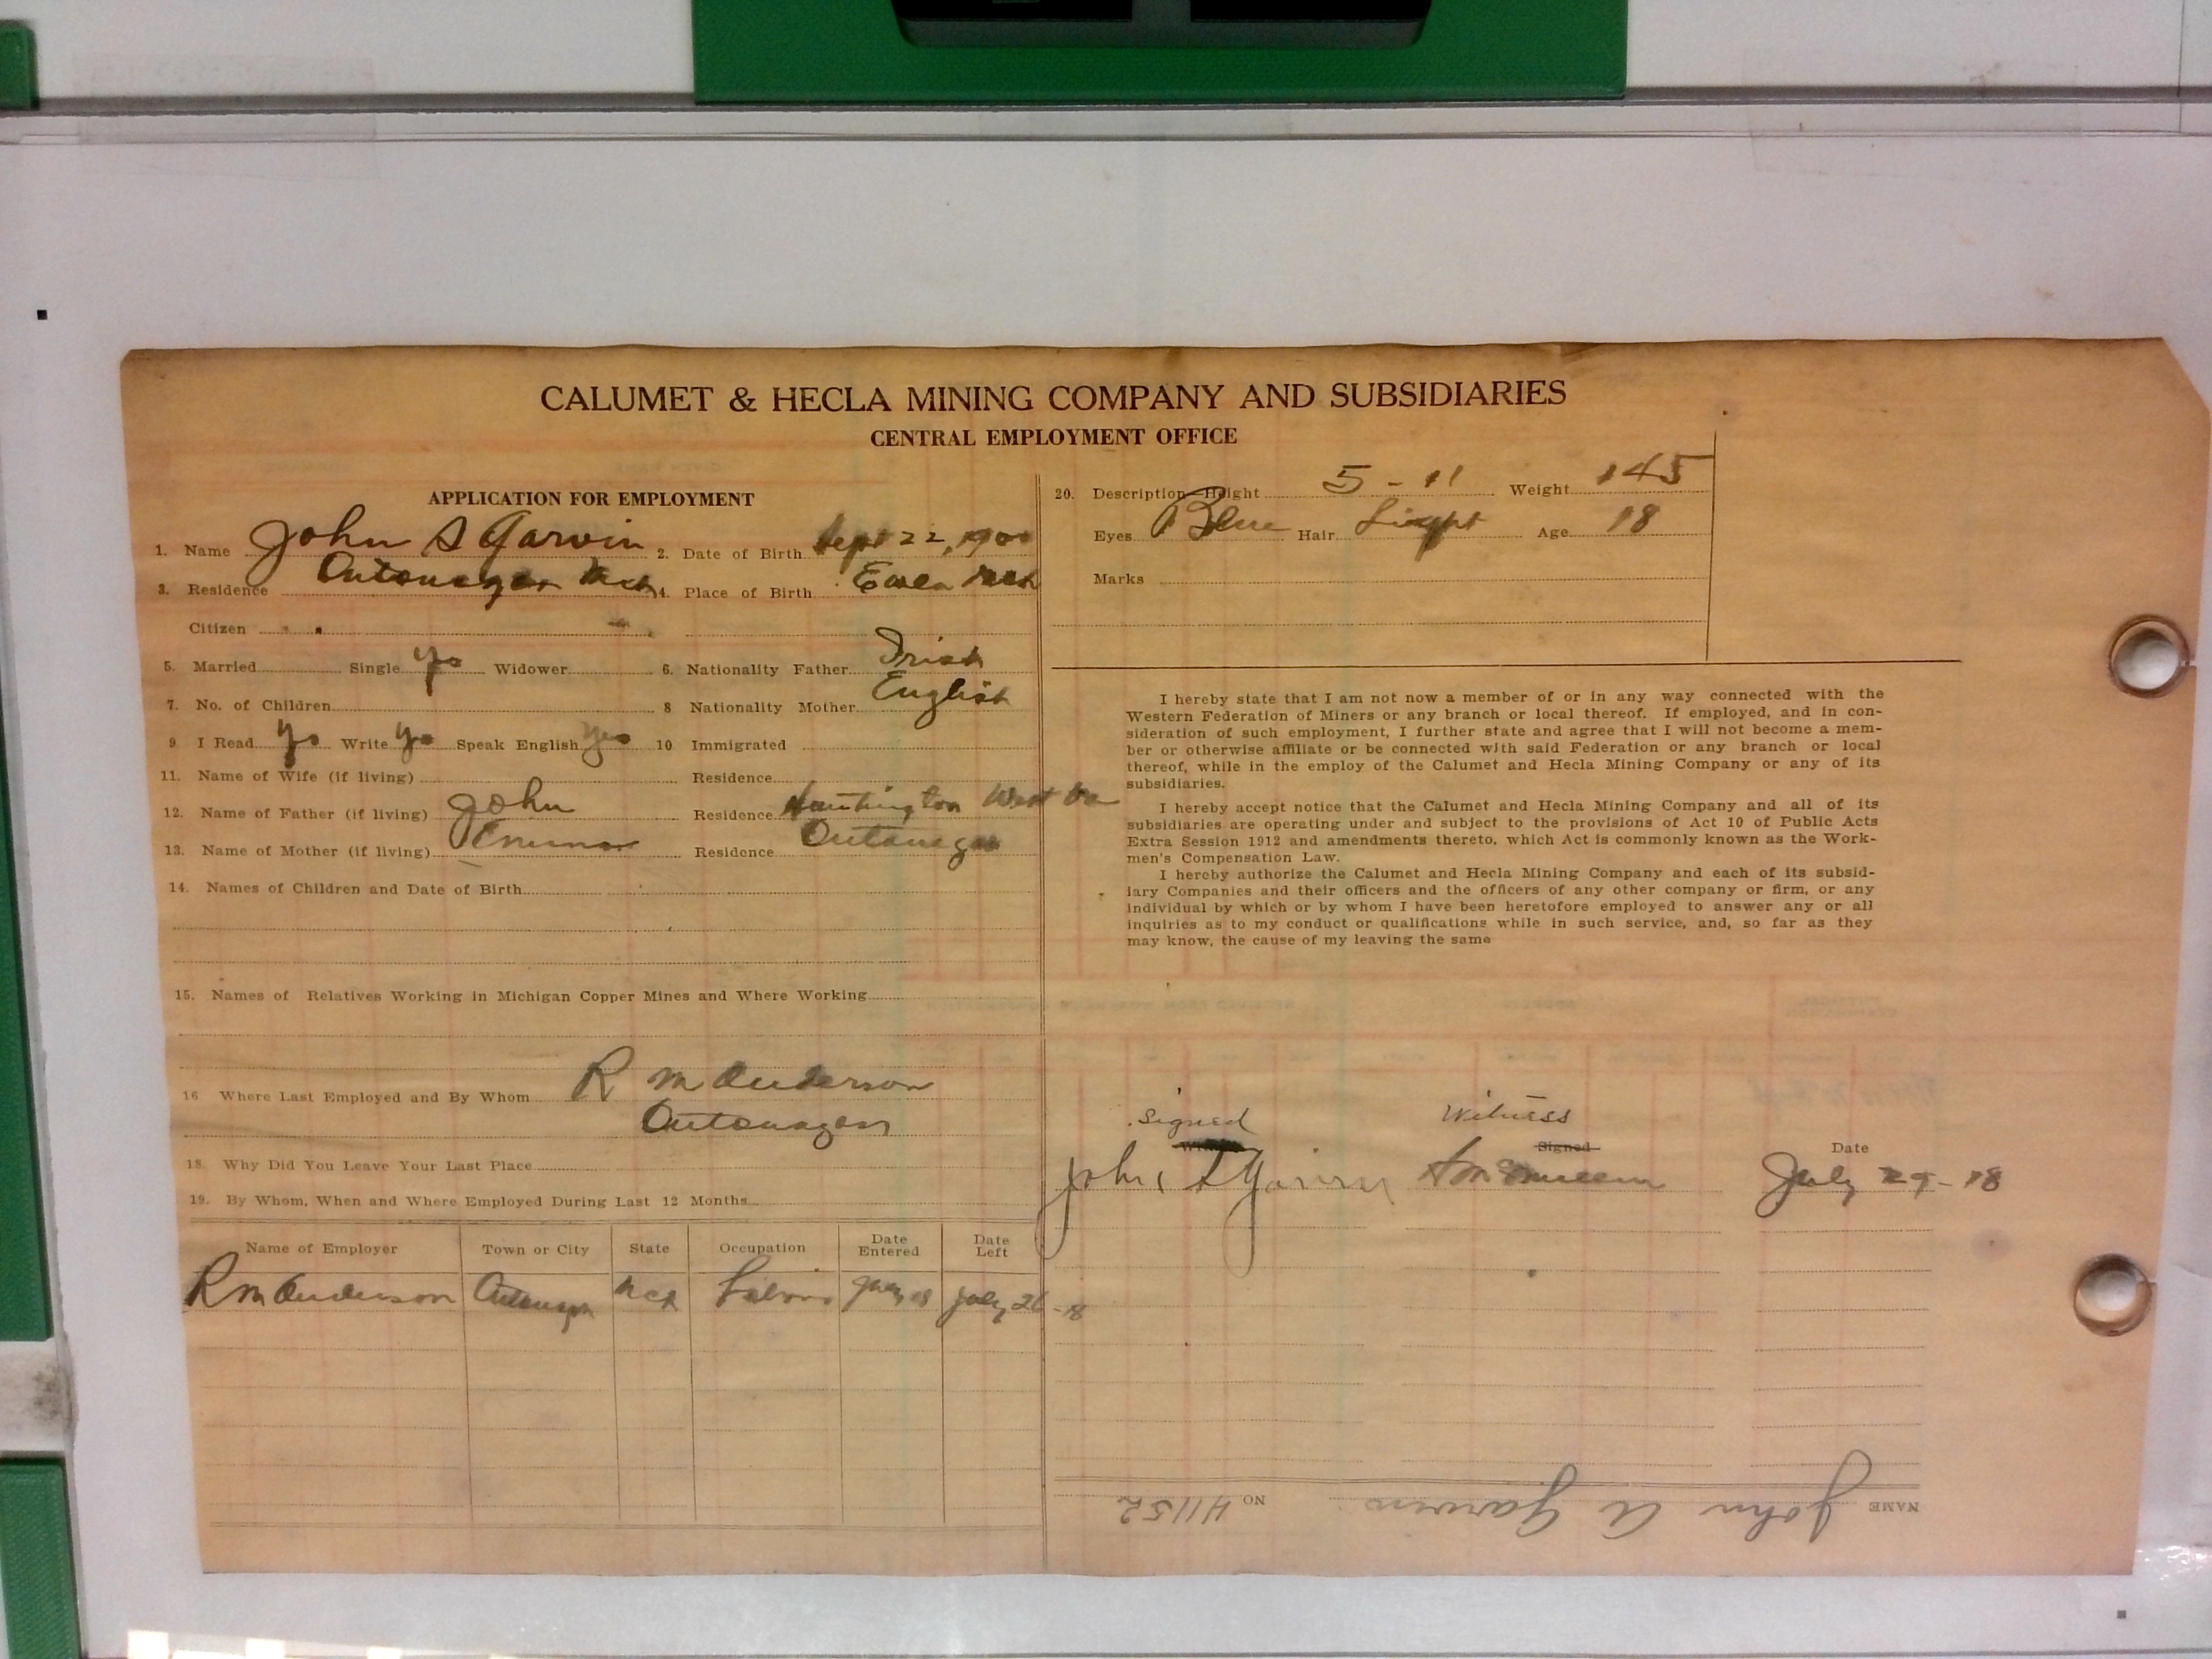 CALUMET & HECLA MINING COMPANY AND SUBSIDIARIES
CENTRAL EMPLOYMENT OFFICE
APPLICATION FOR EMPLOYMENT
1. Name John S Garvin 2. Date of Birth Sept 22, 1900
3. Residence Ontonagon Mch 4. Place of Birth Ewen Mch
Citizen
5. Married Single yes Widower 6. Nationality Father Irish
7. No. of Children 8 Nationality Mother English
9 I Read yes Write yes Speak English yes 10 Immigrated
11. Name of Wife (if living) Residence
12. Name of Father (if living) John Residence Huntington West Va
13. Name of Mother (if living) Emma Residence Ontonagon
14. Names of Children and Date of Birth
15. Names of Relatives Working in Michigan Copper Mines and Where Working
16 Where Last Employed and By Whom R M Anderson
Ontonagon
18. Why Did You Leave Your Last Place
19. By Whom, When and Where Employed During Last 12 Months
Name of Employer Town or City State Occupation Date Entered Date Left
R M Anderson Ontonagon Mch Labor 18 July 26-18
20. Description—Height 5-11 Weight 145
Eyes Blue Hair Light Age 18
Marks
I hereby state that I am not now a member of or in any way connected with the
Western Federation of Miners or any branch or local thereof. If employed, and in con-
sideration of such employment, I further state and agree that I will not become a mem-
ber or otherwise affiliate or be connected with said Federation or any branch or local
thereof, while in the employ of the Calumet and Hecla Mining Company or any of its
subsidiaries.
I hereby accept notice that the Calumet and Hecla Mining Company and all of its
subsidiaries are operating under and subject to the provisions of Act 10 of Public Acts
Extra Session 1912 and amendments thereto, which Act is commonly known as the Work-
men's Compensation Law.
I hereby authorize the Calumet and Hecla Mining Company and each of its subsid-
iary Companies and their officers and the officers of any other company or firm, or any
individual by which or by whom I have been heretofore employed to answer any or all
inquiries as to my conduct or qualifications while in such service, and, so far as they
may know, the cause of my leaving the same
Signed Witness
Signed Date
John Garvin July 29-18
NAME John A Garvin NO 41152